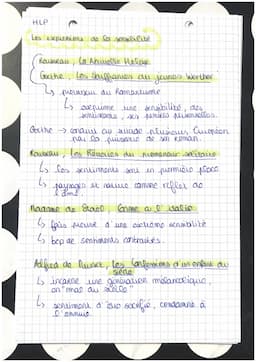 HLP
Les expressions de la sensibilité
Rousseau, La Nouvelle Héloïse
Goethe, Les Souffrances du jeune Werther
↳ précurseur du Romantisme
↳ exprime une sensibilité, des
émotions, ses pensées personnelles.
Goethe → conduit au suicide plusieurs Européen
par la puissance de son roman.
Rousseau, Les Rêveries du promeneur solitaire
↳ Les sentiments sont en première place
↳ paysages et nature comme reflet de
l'âme.
Madame de Staël, Corinne ou l'Italie
↳ fait preuve d'une extrême sensibilité
↳ bcp de sentiments contrastés.
Alfred de Musset, Les Confessions d'un enfant du
siècle
↳ incarne une génération mélancolique,
un "mal du siècle"
↳ sentiment d'être sacrifié, condamné à
l'ennui.